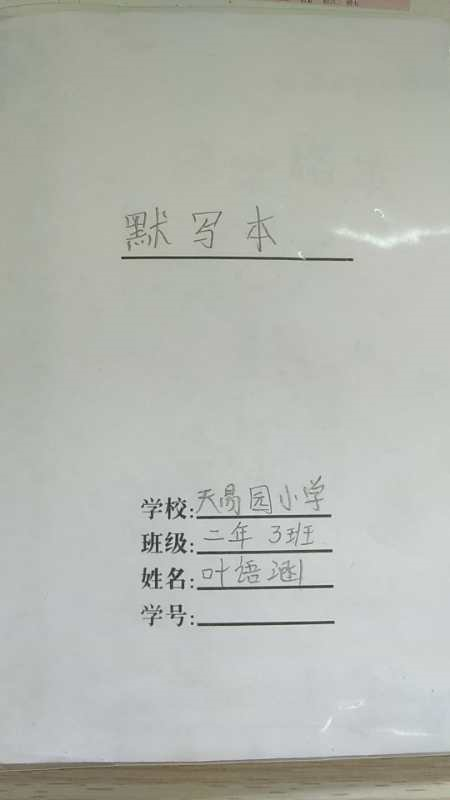 默写本
学校:天易园小学
班级:二年3班
姓名:叶语涵
学号: